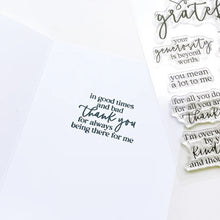 in good times
and bad
thank you
for always
being there for me
grateful
your
generosity
is beyond
words
you mean
a lot to me
for all you do
for all you are
thank
I'm overw
by y
kind
and th